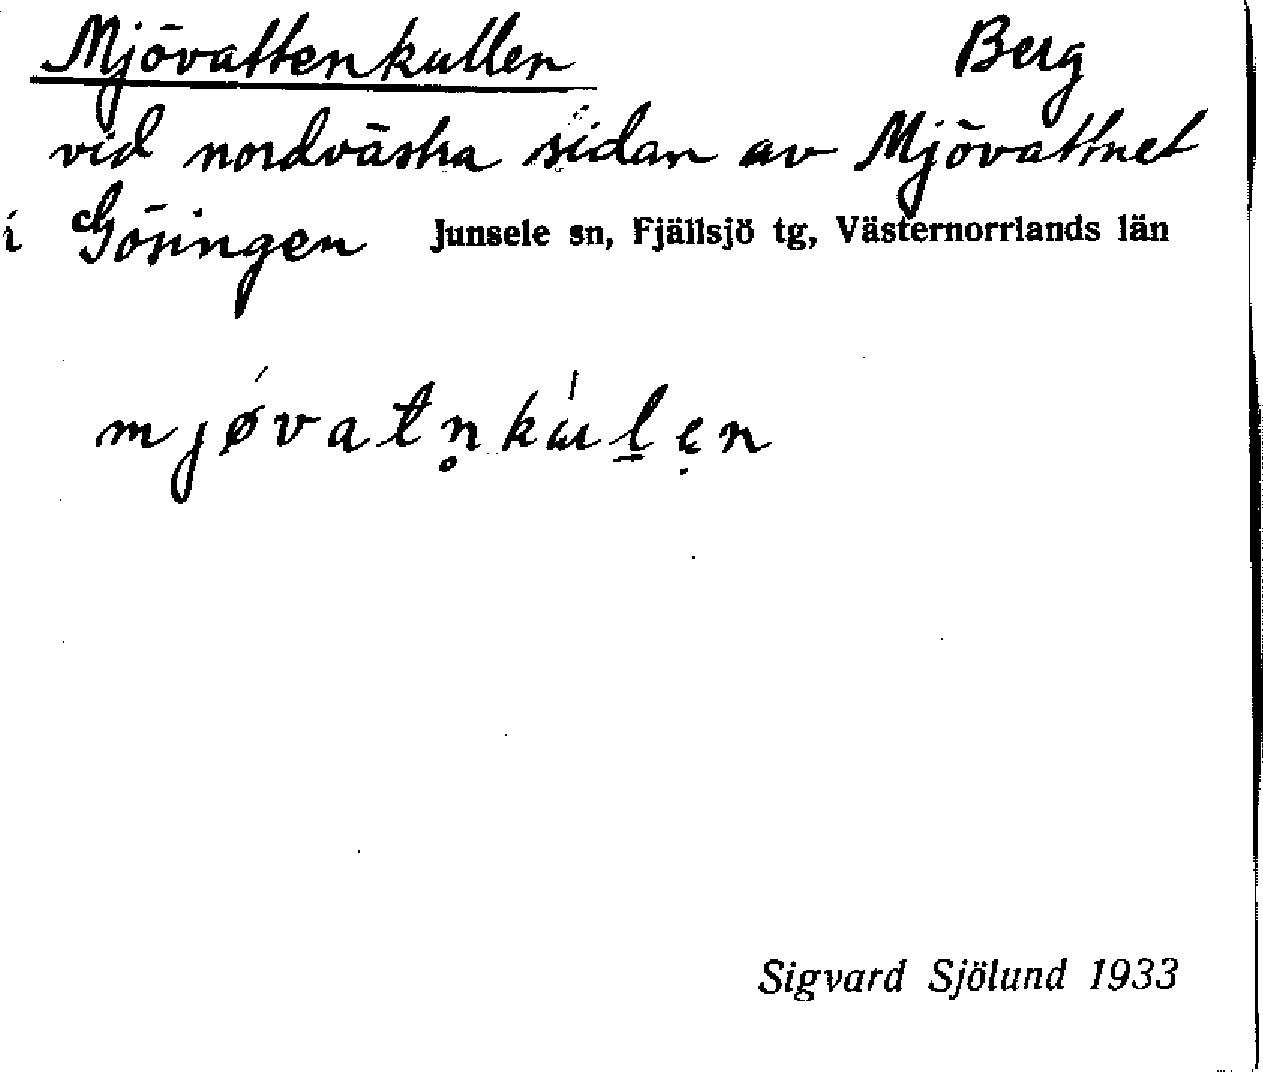 Mjövattenkullen Berg
vid nordvästra sidan av Mjövattnet
i Gösingen Junsele sn, Fjällsjö tg, Västernorrlands län
mjǿvatn̥kùlen
Sigvard Sjölund 1933